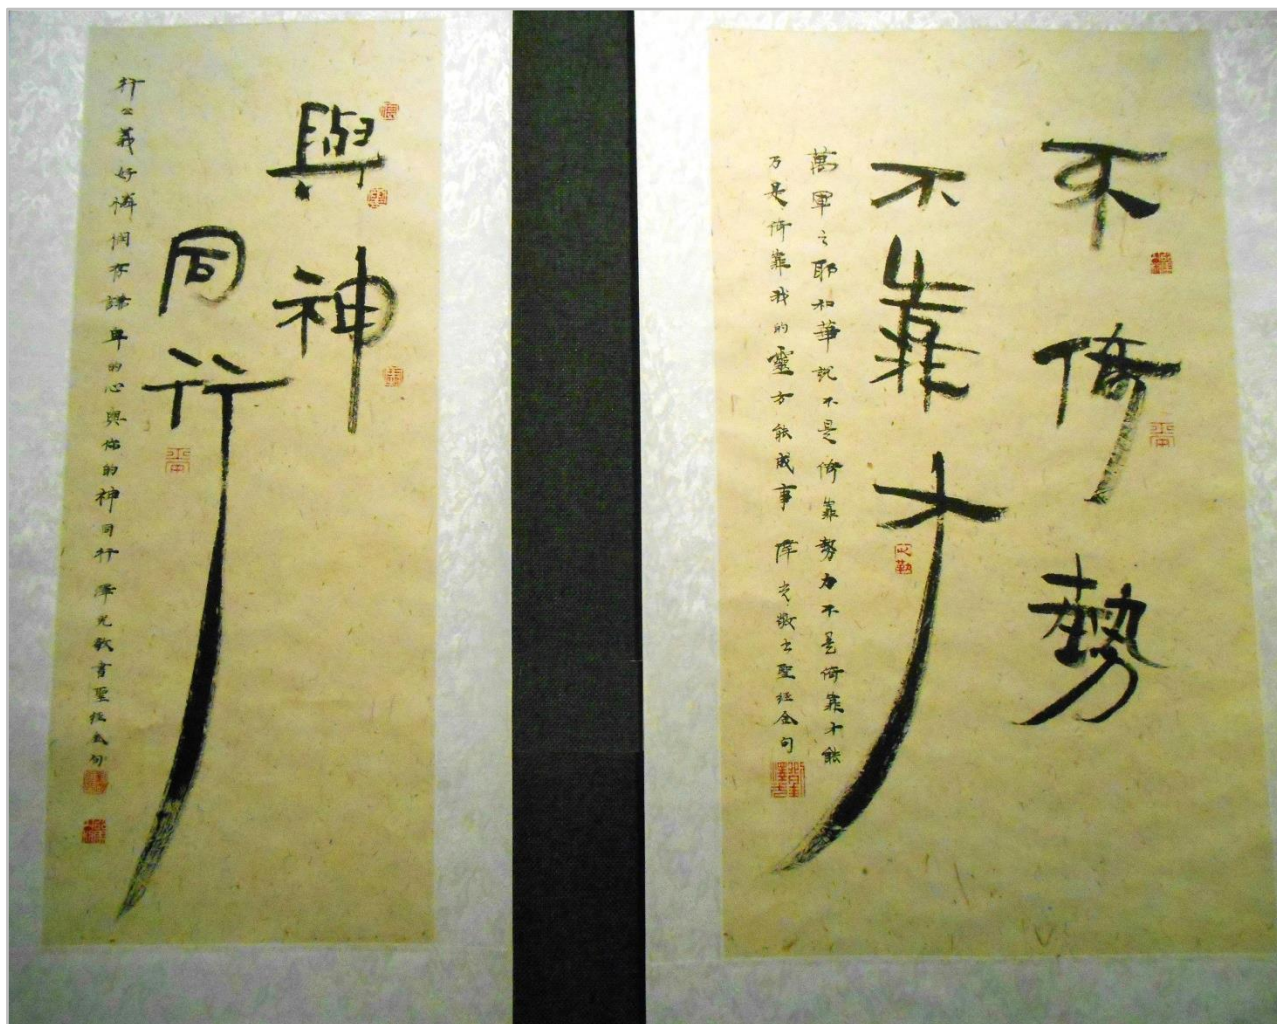 不倚勢
不靠才
萬軍之耶和華說不是倚靠勢力不是倚靠才能
乃是倚靠我的靈方能成事 澤光敬書聖經金句
以勒
與神
同行
行公義好憐憫存謙卑的心與你的神同行 澤光敬書聖經金句